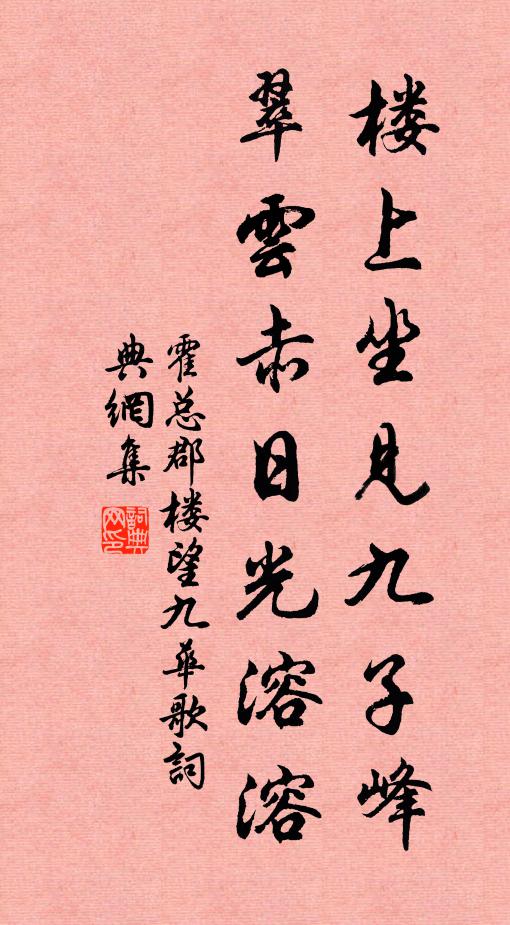 楼上坐见九子峰
翠雲赤日光溶溶
霍总郡楼望九華歌詞
典網集
詞典网印